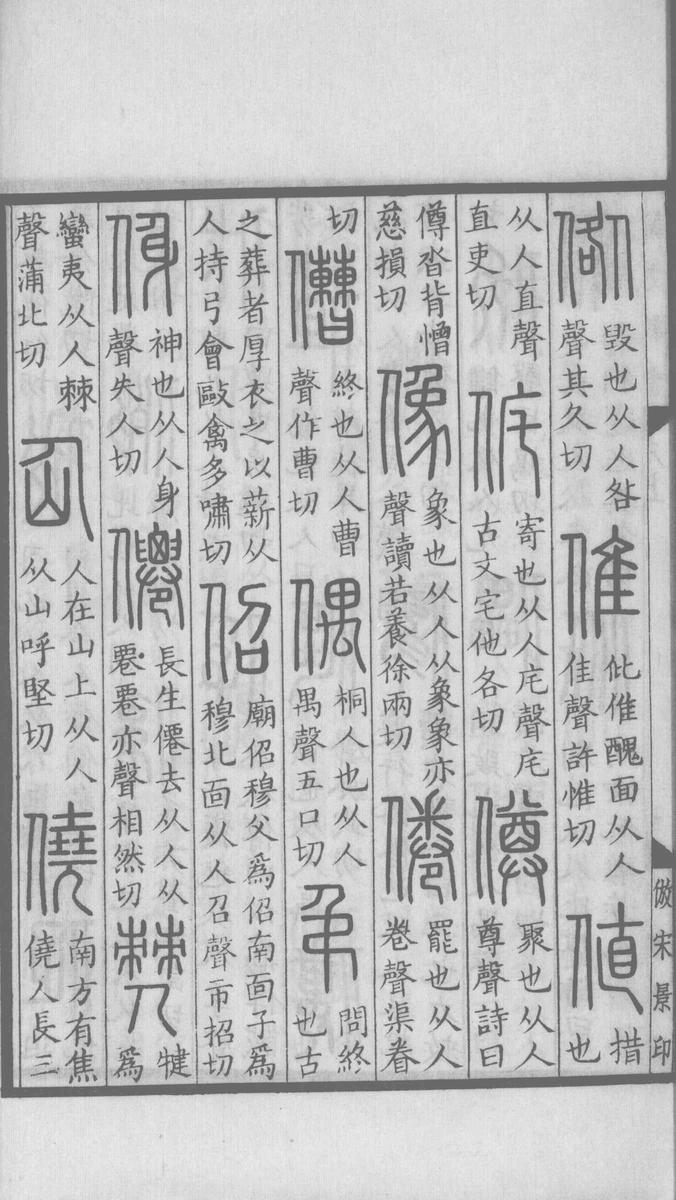 倃毀也从人咎聲其久切倠仳倠醜面从人隹聲許惟切値措也
从人直聲直吏切侂寄也从人㡯聲㡯古文宅他各切僔聚也从人尊聲詩曰
僔沓背憎慈損切像象也从人从象象亦聲讀若養徐兩切倦罷也从人卷聲渠眷
切傮終也从人曹聲作曹切偶桐人也从人禺聲五口切弔問終也古
之葬者厚衣之以薪从人持弓會敺禽多嘯切佋廟佋穆父爲佋南面子爲穆北面从人召聲市招切
㑗神也从人身聲失人切僊長生僊去从人从䙴䙴亦聲相然切僰犍爲
蠻夷从人棘聲蒲北切仚人在山上从人从山呼堅切僥南方有焦僥人長三
倣宋景印